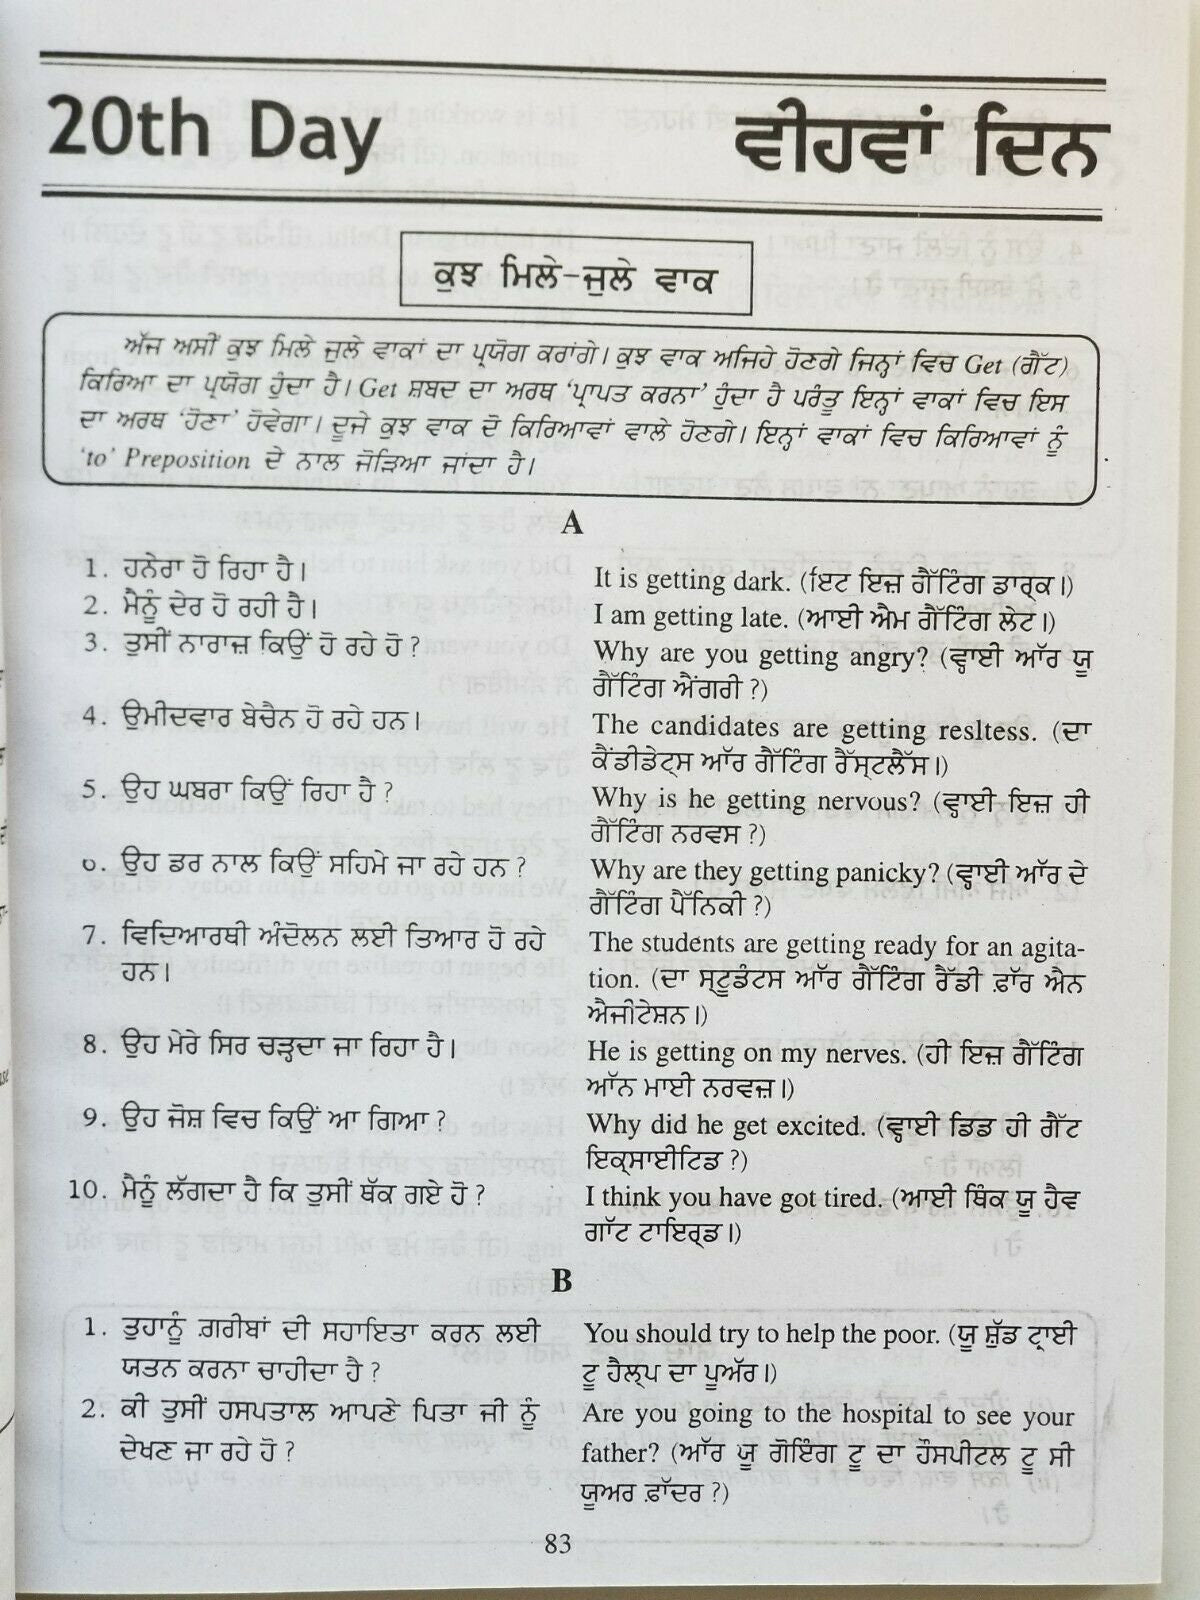 20th Day ਵੀਹਵਾਂ ਦਿਨ
ਕੁਝ ਮਿਲੇ-ਜੁਲੇ ਵਾਕ
ਅੱਜ ਅਸੀਂ ਕੁਝ ਮਿਲੇ ਜੁਲੇ ਵਾਕਾਂ ਦਾ ਪ੍ਰਯੋਗ ਕਰਾਂਗੇ। ਕੁਝ ਵਾਕ ਅਜਿਹੇ ਹੋਣਗੇ ਜਿਨ੍ਹਾਂ ਵਿਚ Get (ਗੈੱਟ)
ਕਿਰਿਆ ਦਾ ਪ੍ਰਯੋਗ ਹੁੰਦਾ ਹੈ। Get ਸ਼ਬਦ ਦਾ ਅਰਥ ‘ਪ੍ਰਾਪਤ ਕਰਨਾ’ ਹੁੰਦਾ ਹੈ ਪਰੰਤੂ ਇਨ੍ਹਾਂ ਵਾਕਾਂ ਵਿਚ ਇਸ
ਦਾ ਅਰਥ ‘ਹੋਣਾ’ ਹੋਵੇਗਾ। ਦੂਜੇ ਕੁਝ ਵਾਕ ਦੋ ਕਿਰਿਆਵਾਂ ਵਾਲੇ ਹੋਣਗੇ। ਇਨ੍ਹਾਂ ਵਾਕਾਂ ਵਿਚ ਕਿਰਿਆਵਾਂ ਨੂੰ
‘to’ Preposition ਦੇ ਨਾਲ ਜੋੜਿਆ ਜਾਂਦਾ ਹੈ।
A
1. ਹਨੇਰਾ ਹੋ ਰਿਹਾ ਹੈ।
It is getting dark. (ਇਟ ਇਜ਼ ਗੈੱਟਿੰਗ ਡਾਰ੍ਕ।)
2. ਮੈਨੂੰ ਦੇਰ ਹੋ ਰਹੀ ਹੈ।
I am getting late. (ਆਈ ਐਮ ਗੈੱਟਿੰਗ ਲੇਟ।)
3. ਤੁਸੀਂ ਨਾਰਾਜ਼ ਕਿਉਂ ਹੋ ਰਹੇ ਹੋ ?
Why are you getting angry? (ਵ੍ਹਾਈ ਆੱਰ ਯੂ
ਗੈੱਟਿੰਗ ਐਂਗਰੀ ?)
4. ਉਮੀਦਵਾਰ ਬੇਚੈਨ ਹੋ ਰਹੇ ਹਨ।
The candidates are getting resltess. (ਦਾ
ਕੈਂਡੀਡੇਟ੍ਸ ਆੱਰ ਗੈੱਟਿੰਗ ਰੈੱਸ੍ਟਲੈੱਸ।)
5. ਉਹ ਘਬਰਾ ਕਿਉਂ ਰਿਹਾ ਹੈ ?
Why is he getting nervous? (ਵ੍ਹਾਈ ਇਜ਼ ਹੀ
ਗੈੱਟਿੰਗ ਨਰਵਸ ?)
ਉਹ ਡਰ ਨਾਲ ਕਿਉਂ ਸਹਿਮੇ ਜਾ ਰਹੇ ਹਨ ?
Why are they getting panicky? (ਵ੍ਹਾਈ ਆੱਰ ਦੇ
ਗੈੱਟਿੰਗ ਪੈੱਨਿਕੀ ?)
7. ਵਿਦਿਆਰਥੀ ਅੰਦੋਲਨ ਲਈ ਤਿਆਰ ਹੋ ਰਹੇ
ਹਨ।
The students are getting ready for an agita-
tion. (ਦਾ ਸ੍ਟੂਡੰਟਸ ਆੱਰ ਗੈੱਟਿੰਗ ਰੈੱਡੀ ਫ਼ਾੱਰ ਐਨ
ਐਜੀਟੇਸ਼ਨ।)
8. ਉਹ ਮੇਰੇ ਸਿਰ ਚੜ੍ਹਦਾ ਜਾ ਰਿਹਾ ਹੈ।
He is getting on my nerves. (ਹੀ ਇਜ਼ ਗੈੱਟਿੰਗ
ਆੱਨ ਮਾਈ ਨਰਵਜ਼।)
9. ਉਹ ਜੋਸ਼ ਵਿਚ ਕਿਉਂ ਆ ਗਿਆ ?
Why did he get excited. (ਵ੍ਹਾਈ ਡਿਡ ਹੀ ਗੈੱਟ
ਇਕ੍ਸਾਈਟਿਡ ?)
10. ਮੈਨੂੰ ਲੱਗਦਾ ਹੈ ਕਿ ਤੁਸੀਂ ਥੱਕ ਗਏ ਹੋ ?
I think you have got tired. (ਆਈ ਥਿੰਕ ਯੂ ਹੈਵ
ਗਾੱਟ ਟਾਇਰ੍ਡ।)
B
1. ਤੁਹਾਨੂੰ ਗ਼ਰੀਬਾਂ ਦੀ ਸਹਾਇਤਾ ਕਰਨ ਲਈ
ਯਤਨ ਕਰਨਾ ਚਾਹੀਦਾ ਹੈ ?
You should try to help the poor. (ਯੂ ਸ਼ੁੱਡ ਟ੍ਰਾਈ
ਟੂ ਹੈਲ੍ਪ ਦਾ ਪੂਅੱਰ।)
2. ਕੀ ਤੁਸੀਂ ਹਸਪਤਾਲ ਆਪਣੇ ਪਿਤਾ ਜੀ ਨੂੰ
ਦੇਖਣ ਜਾ ਰਹੇ ਹੋ ?
Are you going to the hospital to see your
father? (ਆੱਰ ਯੂ ਗੋਇੰਗ ਟੂ ਦਾ ਹੌਸਪੀਟਲ ਟੂ ਸੀ
ਯੂਅਰ ਫ਼ਾੱਦਰ ?)
83